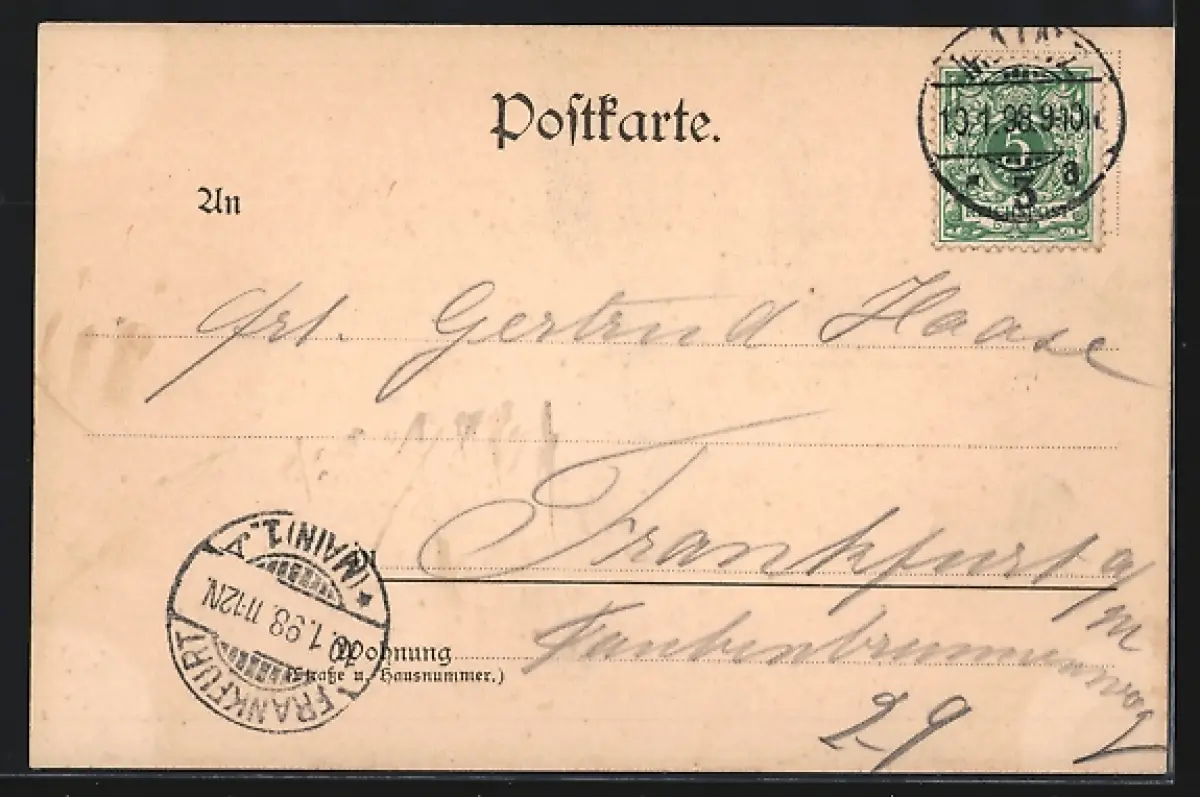 Postkarte.
An
10.1.98.9-10N.
5
* 3 a
REICHSPOST
Frl. Gertrud Haase
Frankfurt a/M
Wohnung
(Straße u. Hausnummer.)
29
FRANKFURT
* (MAIN) 1.
10.1.98. 11-12N.